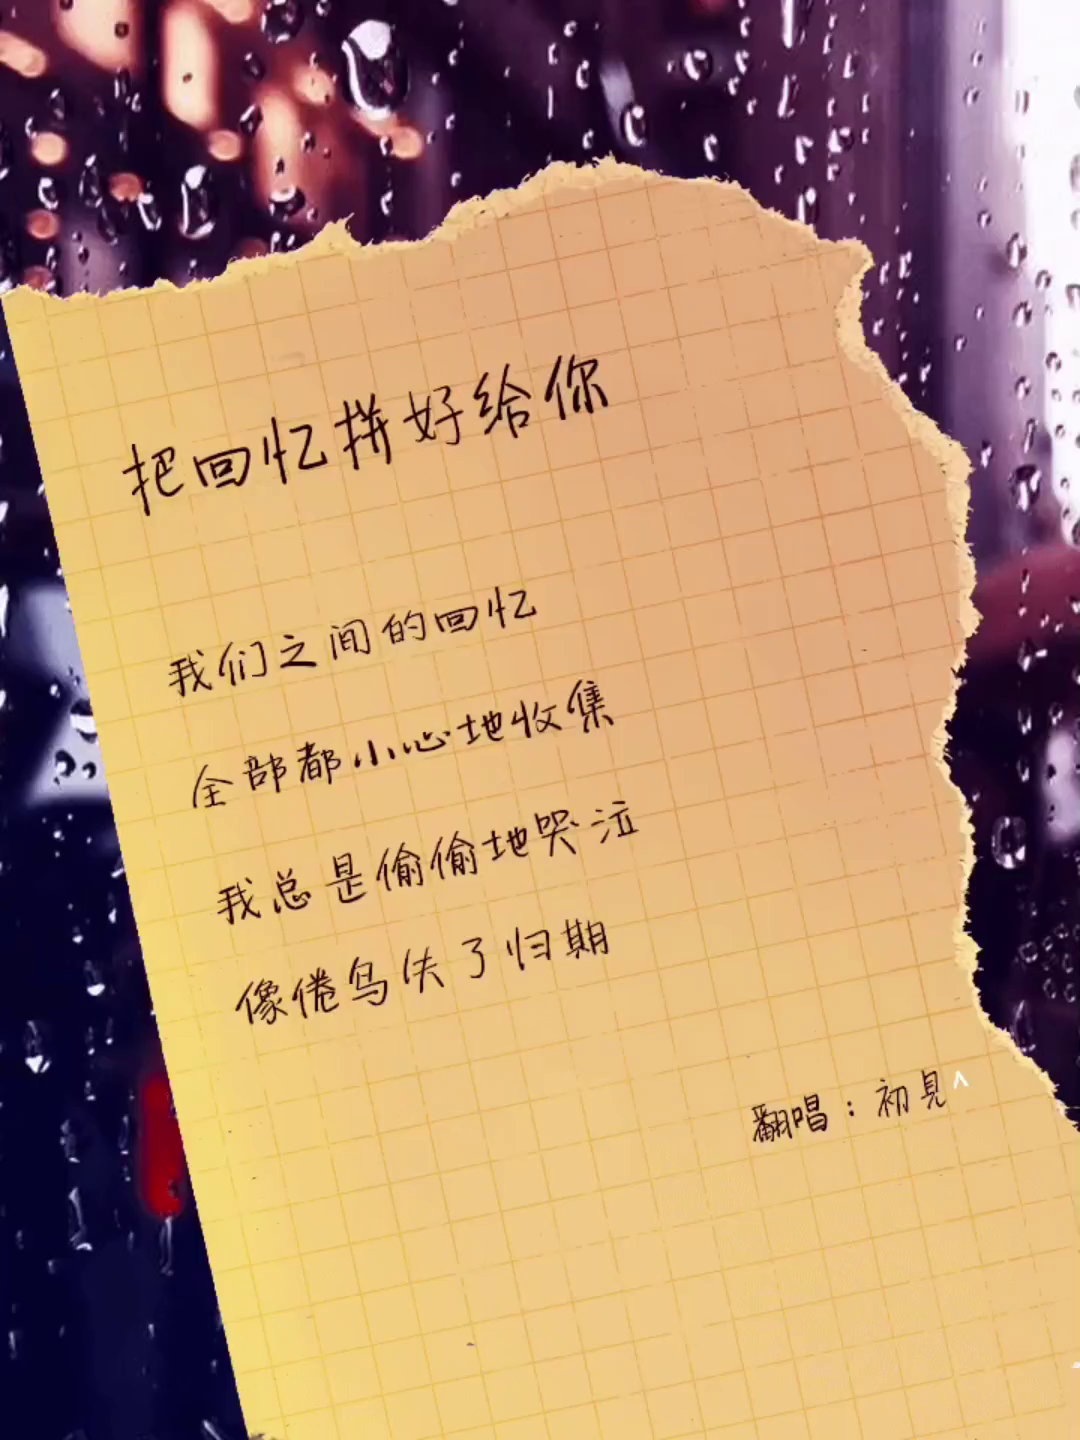 把回忆拼好给你
我们之间的回忆
全部都小心地收集
我总是偷偷地哭泣
像倦鸟失了归期
翻唱：初见^